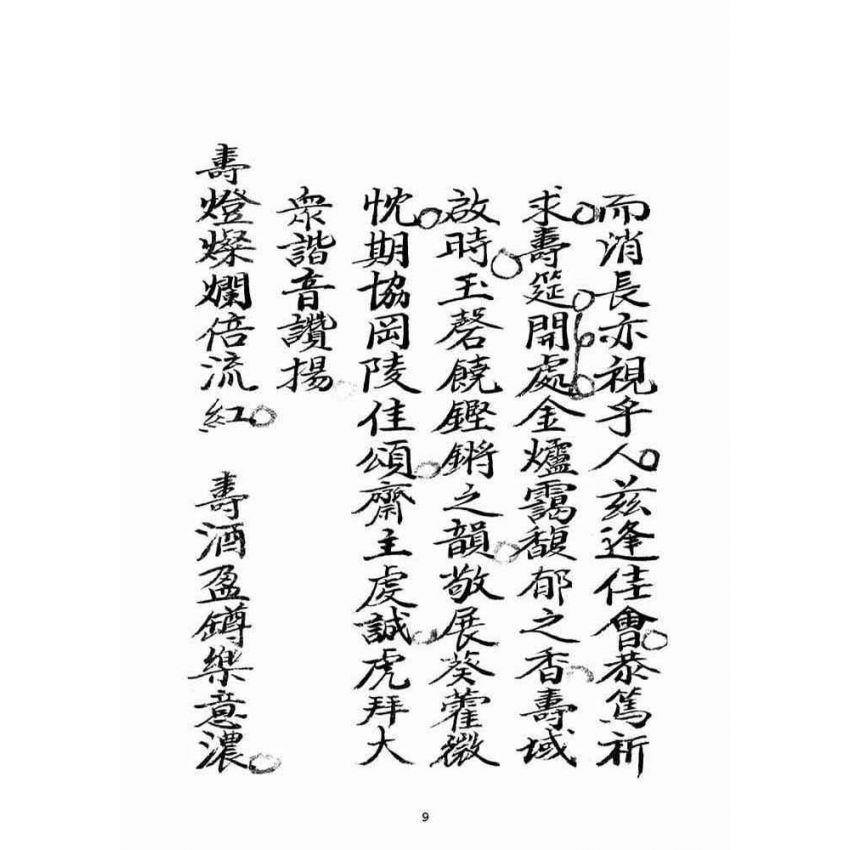 而消長亦視乎人兹逢佳會恭篤祈
求壽筵開處金爐靄馥郁之香壽域
啟時玉磬饒鏗鏘之韻敬展葵藿微
忱期協岡陵佳頌齋主虔誠虎拜大
衆諧音讚揚
壽燈燦爛倍流紅 壽酒盈罇樂意濃
9